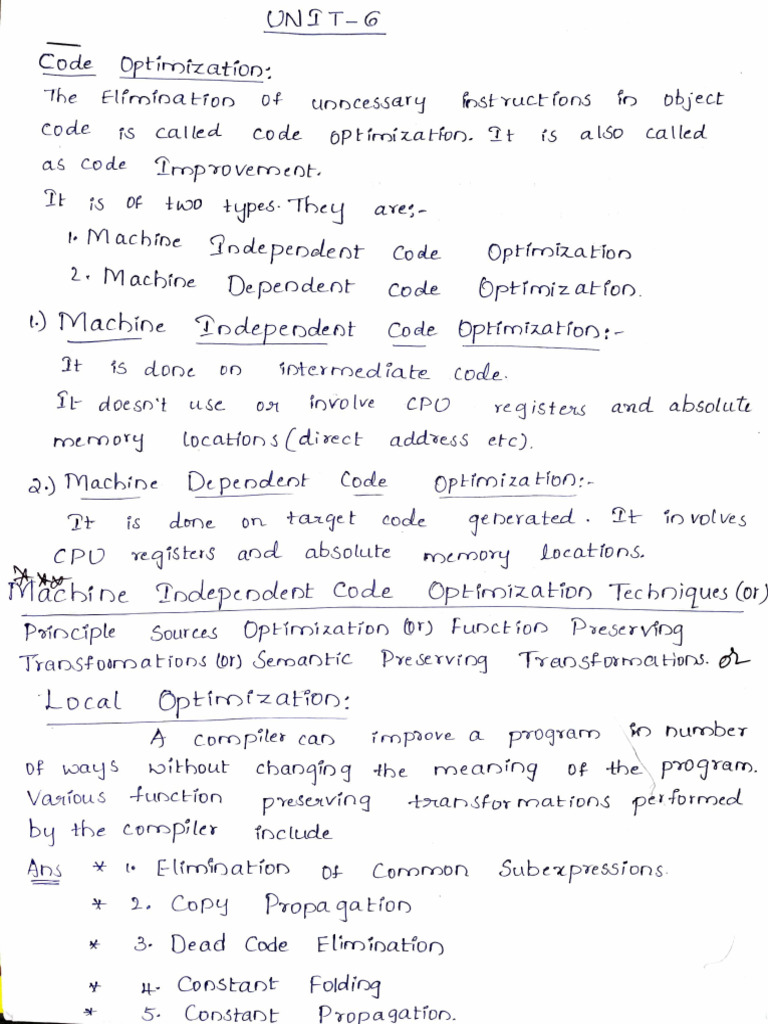 UNIT-6
Code Optimization:
The Elimination of unncessary instructions in object
code is called code optimization. It is also called
as code Improvement.
It is of two types. They are:-
1. Machine Independent Code Optimization
2. Machine Dependent code Optimization.
1.) Machine Independent Code Optimization:-
It is done on intermediate code.
It doesn't use or involve CPU registers and absolute
memory locations (direct address etc).
2.) Machine Dependent Code Optimization:-
It is done on target code generated. It involves
CPU registers and absolute memory locations.
Machine Independent Code Optimization Techniques (or)
Principle Sources Optimization (or) Function Preserving
Transformations (or) Semantic Preserving Transformations. or
Local Optimization:
A compiler can improve a program in number
of ways without changing the meaning of the program.
Various function preserving transformations performed
by the compiler include
Ans * 1. Elimination of Common Subexpressions.
* 2. Copy Propagation
* 3. Dead Code Elimination
* 4. Constant Folding
* 5. Constant Propagation.